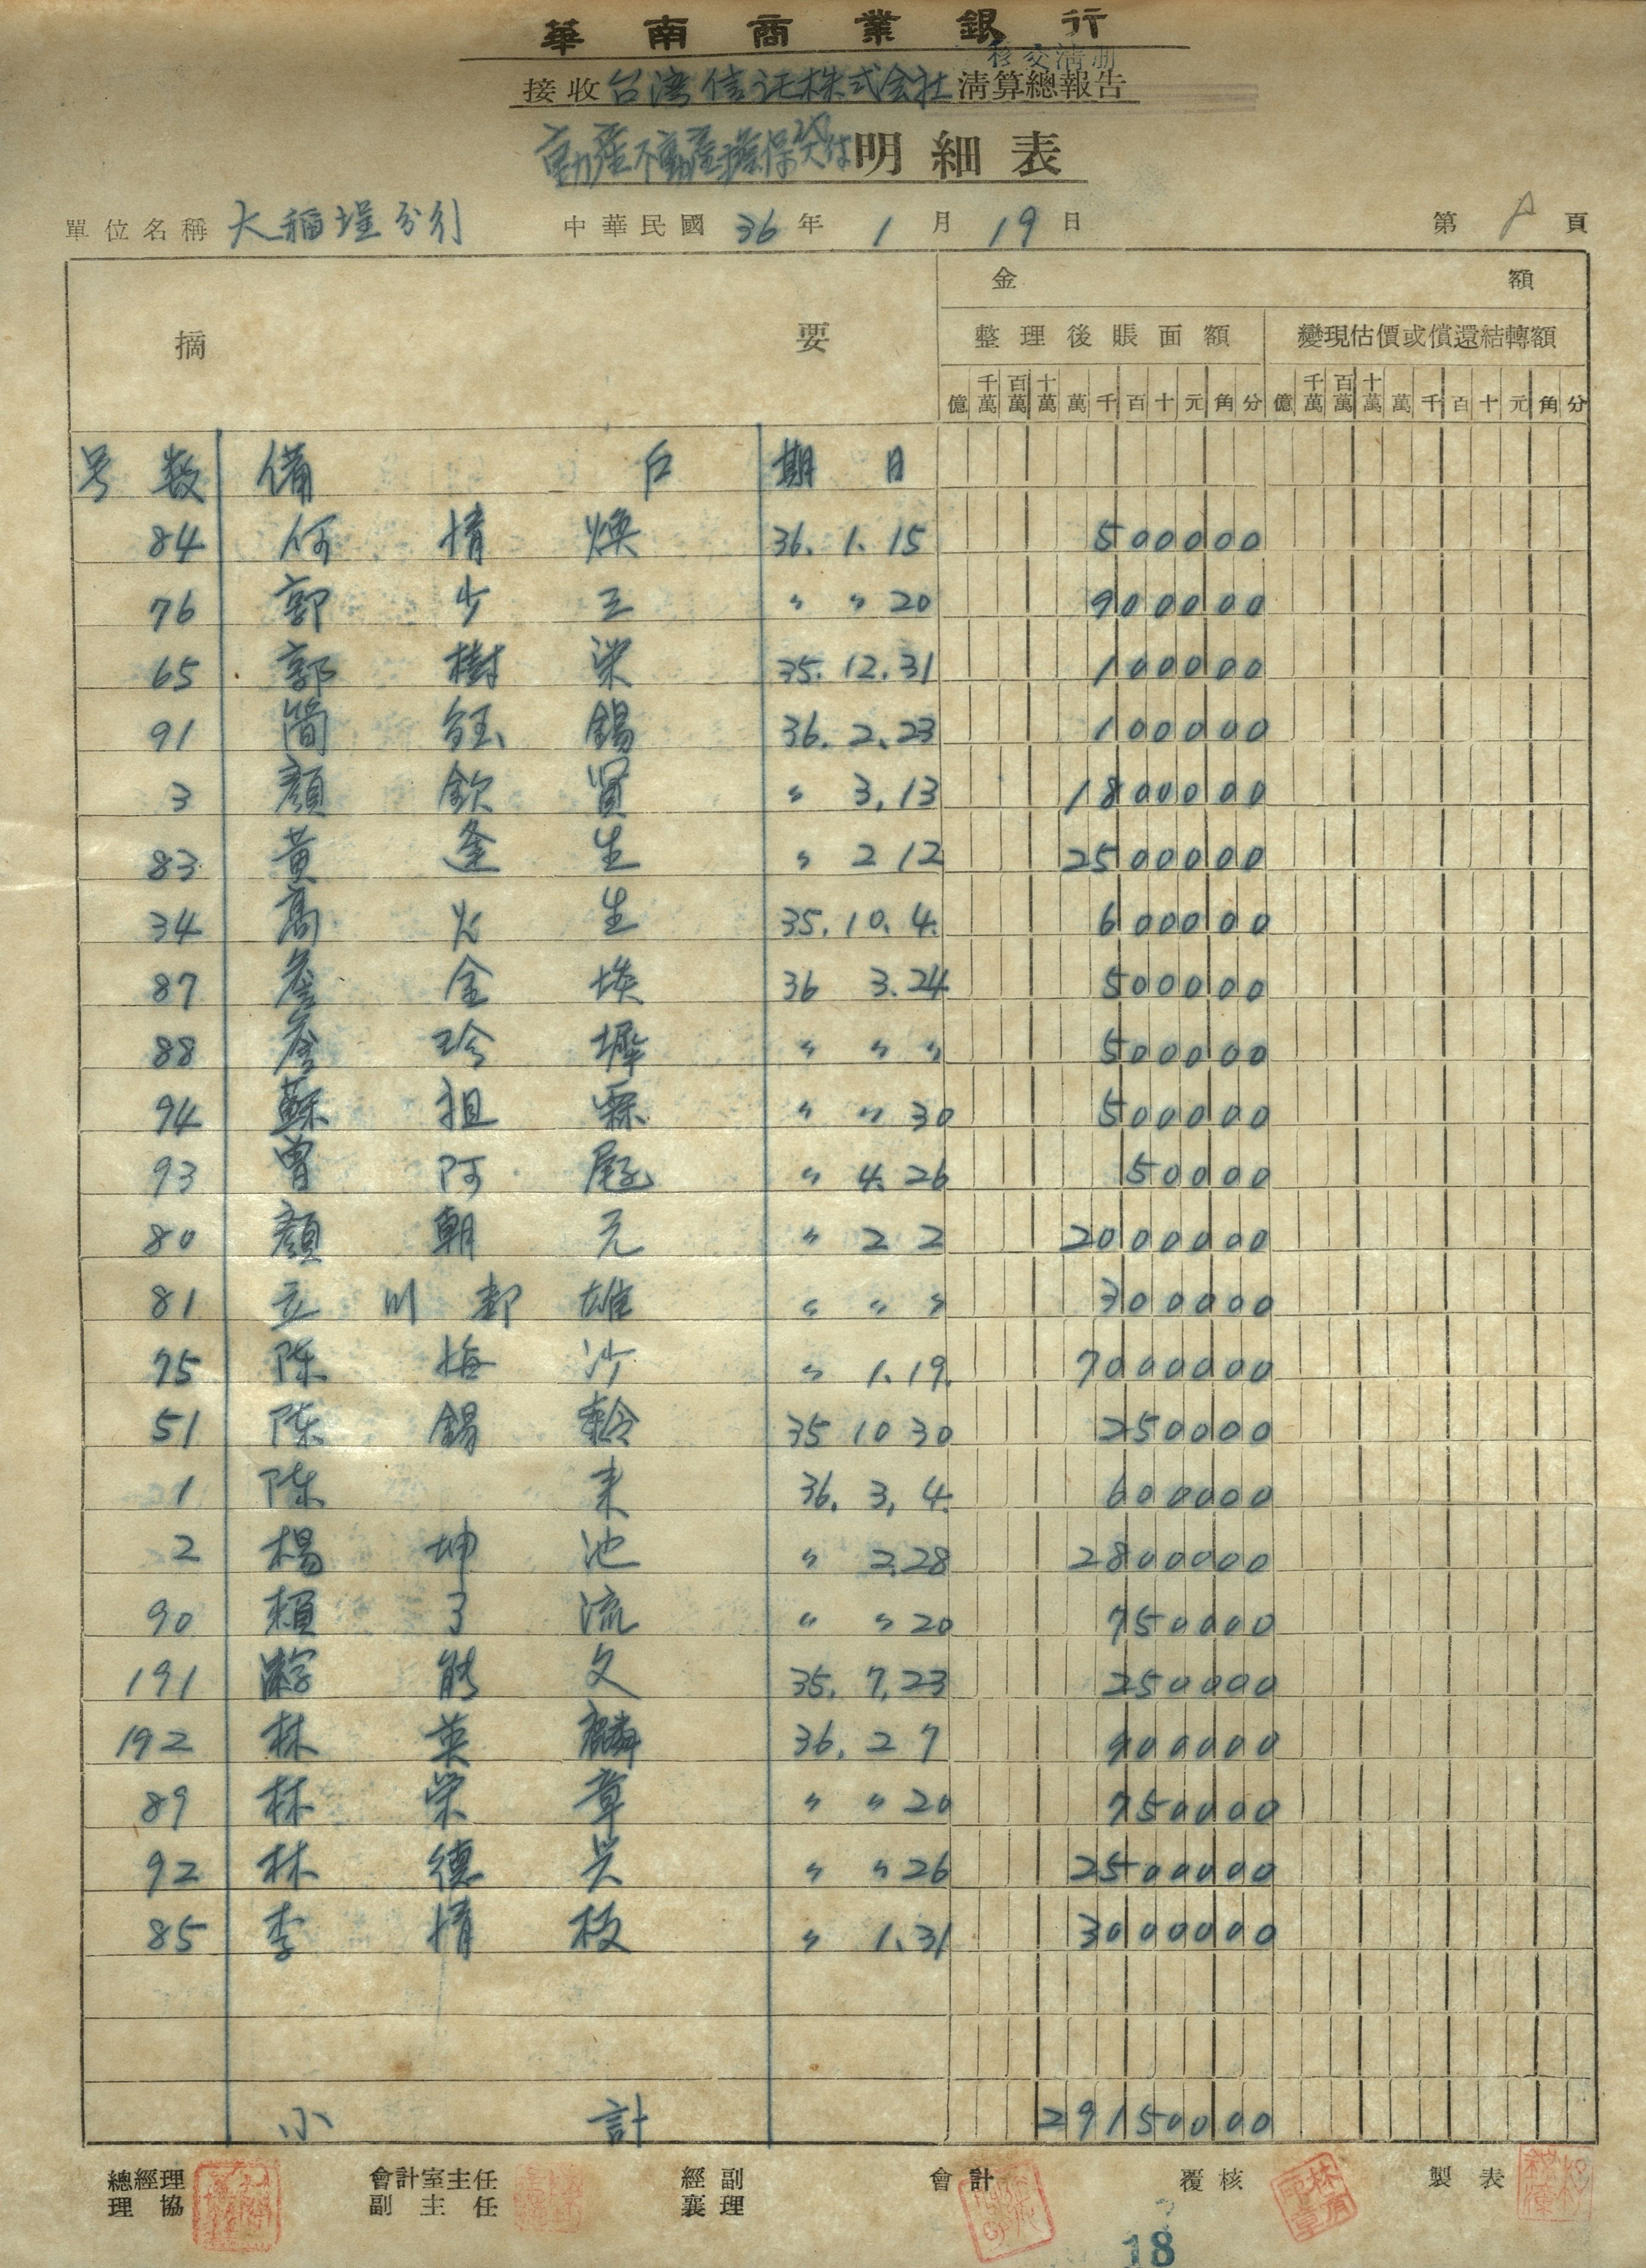 華南商業銀行
移交清册
接收台湾信託株式会社清算總報告
動產不動產擔保貸付明細表
單位名稱 大稲埕分行 中華民國 36 年 1 月 19 日 第 8 頁
摘要 金額
整理後賬面額 變現估價或償還結轉額
億 千萬 百萬 十萬 萬 千 百 十 元 角 分 億 千萬 百萬 十萬 萬 千 百 十 元 角 分
号数 備户 期日
84 何情煥 36. 1. 15 500000
76 郭少三 〃 〃 20 900000
65 郭樹栄 35. 12. 31 100000
91 簡鈺錫 36. 2. 23 100000
3 顏欽賢 〃 3. 13 1800000
83 黃逢生 〃 2 12 2500000
34 高火生 35. 10. 4. 600000
87 詹金埃 36 3. 24 500000
88 詹玲墀 〃 〃 〃 500000
94 蘇祖霖 〃 〃 30 500000
93 曽阿尾 〃 4. 26 50000
80 顏朝元 〃 2 2 2000000
81 立川都雄 〃 〃 〃 300000
75 陈梅沙 〃 1. 19. 7000000
51 陈錫 35 10 30 250000
1 陈来 36. 3. 4. 600000
2 楊坤池 〃 2.28 2800000
90 賴了流 〃 〃 20 750000
191 能文 35. 7. 23 250000
192 林英麟 36. 2 7 900000
89 林栄章 〃 〃 20 750000
92 林德吴 〃 〃 26 2500000
85 李情枝 〃 1. 31 3000000
小計 29150000
總經理 會計室主任 經副 會計 覆核 製表
理協 副主任 襄理
18